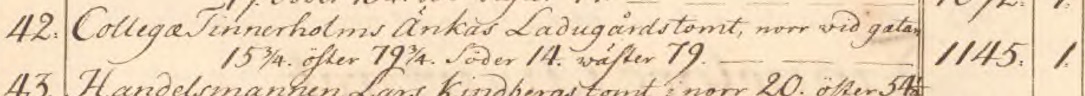 42. Collegæ Tinnerholms Änkas Ladugårdstomt, norr vid gatan
15 3/4. öster 79 3/4. Söder 14. wäster 79. — — — 1145. 1.
43. Handelsmannen Lars Kindbergs tomt: norr 20. öster 54 1/2